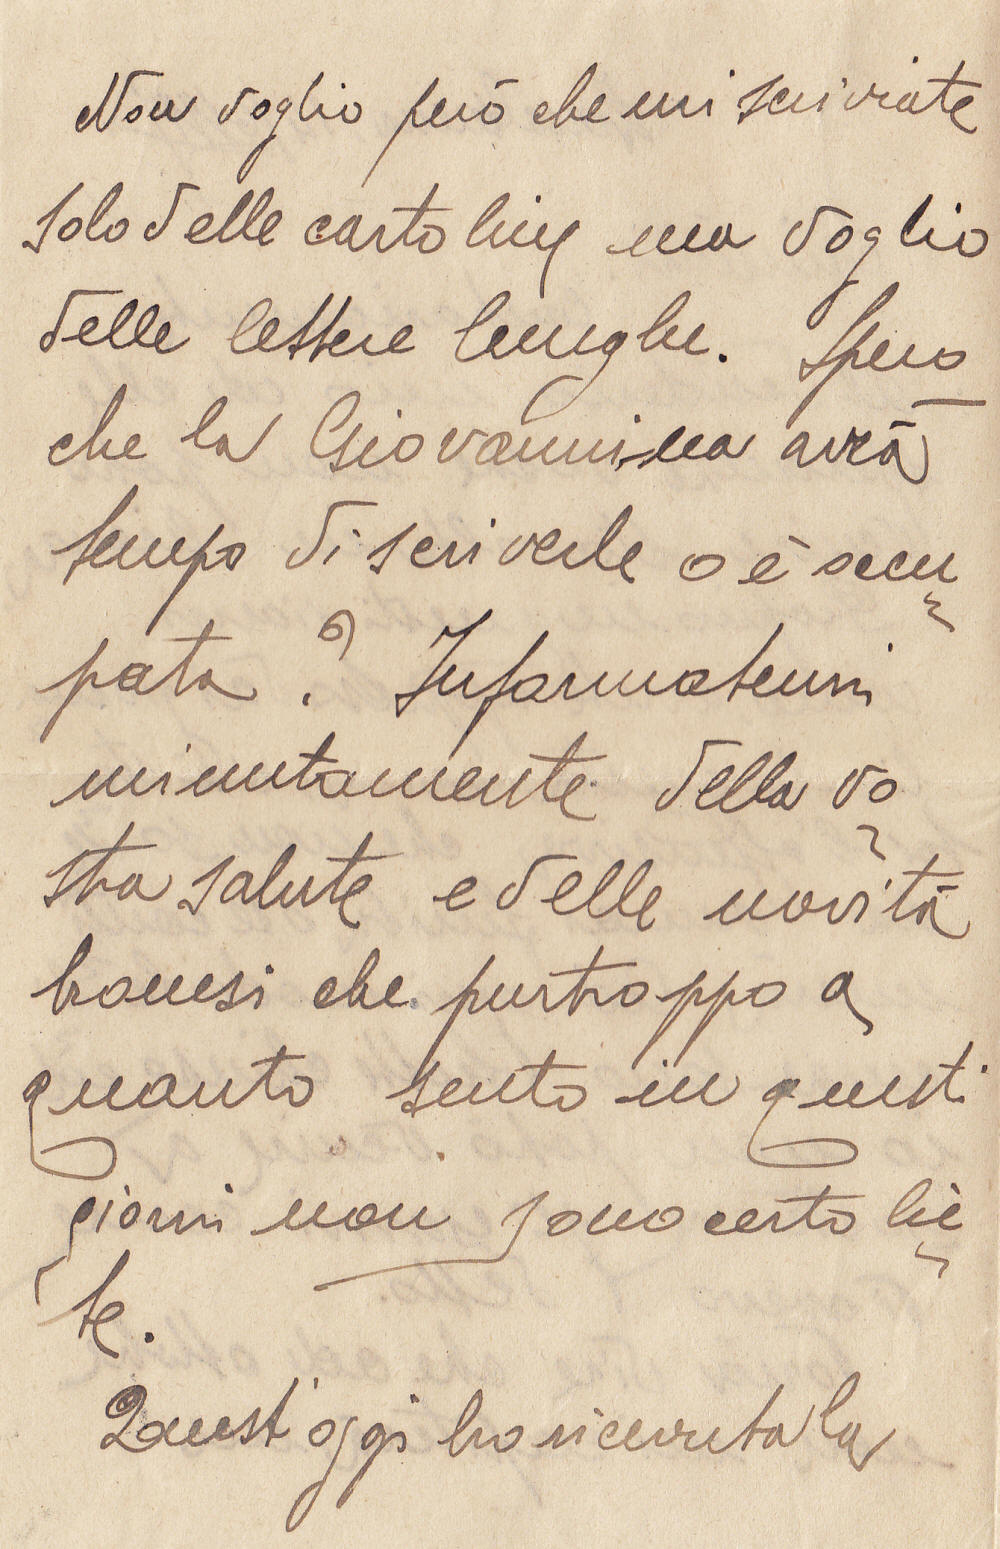 Non voglio però che mi scriviate
solo delle cartoline ma voglio
delle lettere lunghe. Spero
che la Giovannina avrà
tempo di scriverle o è occu
pata? Informatemi
minutamente della vo
stra salute e delle novità
bronesi che purtroppo a
quanto sento in questi
giorni non sono certo lie
te.
Quest'oggi ho ricevuta la